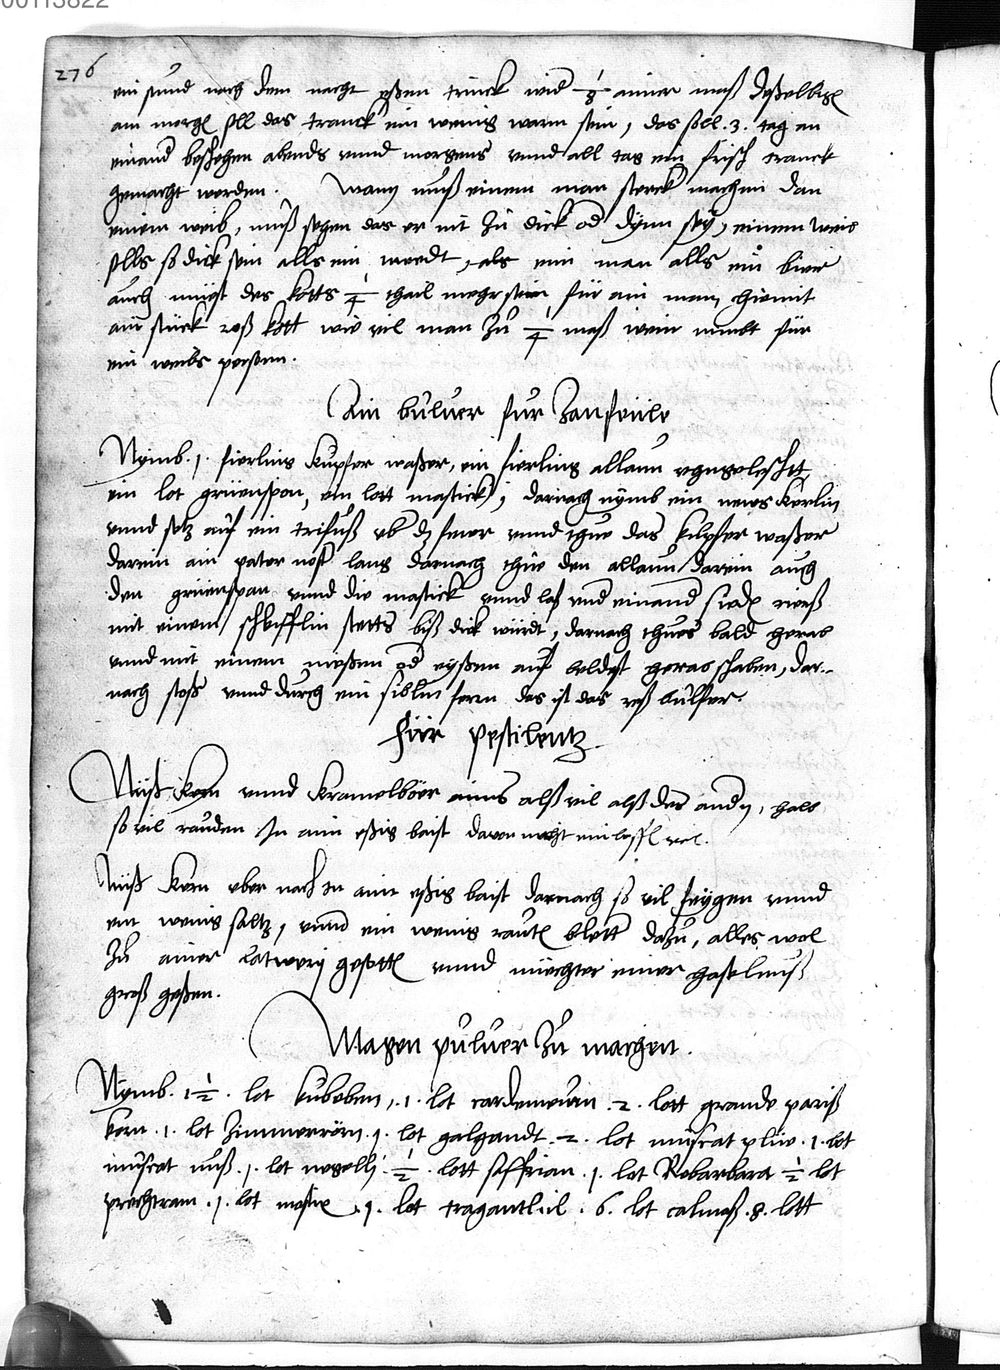 00113822
276
ein stund nach dem nacht eßen trinck wid 1/8 ainer maß deßelbige
am morge soll das tranck ein wenig warm sein, das soll .3. tag an
einand beschehen abends vnnd morgens vnnd all tag ein frisch tranck
gemacht werden. Wann muß einem man sterck machen dan
einem weib, muß sehen das er nit zu dick od dynn sey, einem weib
solls so dick sein alls ein medt, als eim man alls ein bier
auch müest des kotts 1/4 thail mehr sein für ain man, hiemit
ain stück roß kott wie vil man zu 1/4 maß wein nimbt für
ein weibs person.
Ain buluer für Zanfeüle
Nymb .1. fierling Kupfer waßer, ein fierling allaun vngelescht
ein lot grüenspon, ein lott mastick, darnach nymb ein news kerlin
vnnd setz auf ein trifuß vb dz feuer vnnd thue das kupfer waßer
darein ain pater nost lang darnach thue den allaun darein auch
den grüenspan vnnd die mastick vnnd laß vnd einand siede rieß
mit einem scheifflin stetts biß dick würdt, darnach thues bald herab
vnnd mit einem meßen od eyßen auf beldest herab schaben, dar-
nach stoß vnnd durch ein siblin fern das ist das roß bulfer.
für pestilentz.
Nuß kern vnnd kramelbör ains alß vil alß des andn, halb
so vil rauden In ain eßig baist dauon nacht ein leffl vol.
Nuß kern vber nacht in ain eßig baist darnach so vil feygen vnnd
ein wenig saltz, vnnd ein wenig raute blett dazu, alles wol
zu ainer latwery gesotte vnnd niechter einer haselnuß
groß geßen.
Magen puluer zu machen.
Nymb .1 1/2. lot kubeben, .1. lot cardemoum .2. lott grande pariß
korn .1. lot Zimmerrörn .1. lot galgandt .2. lot muscat plüe .1. lot
muscat nuß .1. lot negelly .1/2. lott saffrian .1. lot Rebarbara 1/2 lot
prechtram .1. lot mastix .1. lot tragantlid .6. lot calmaß .8. lott